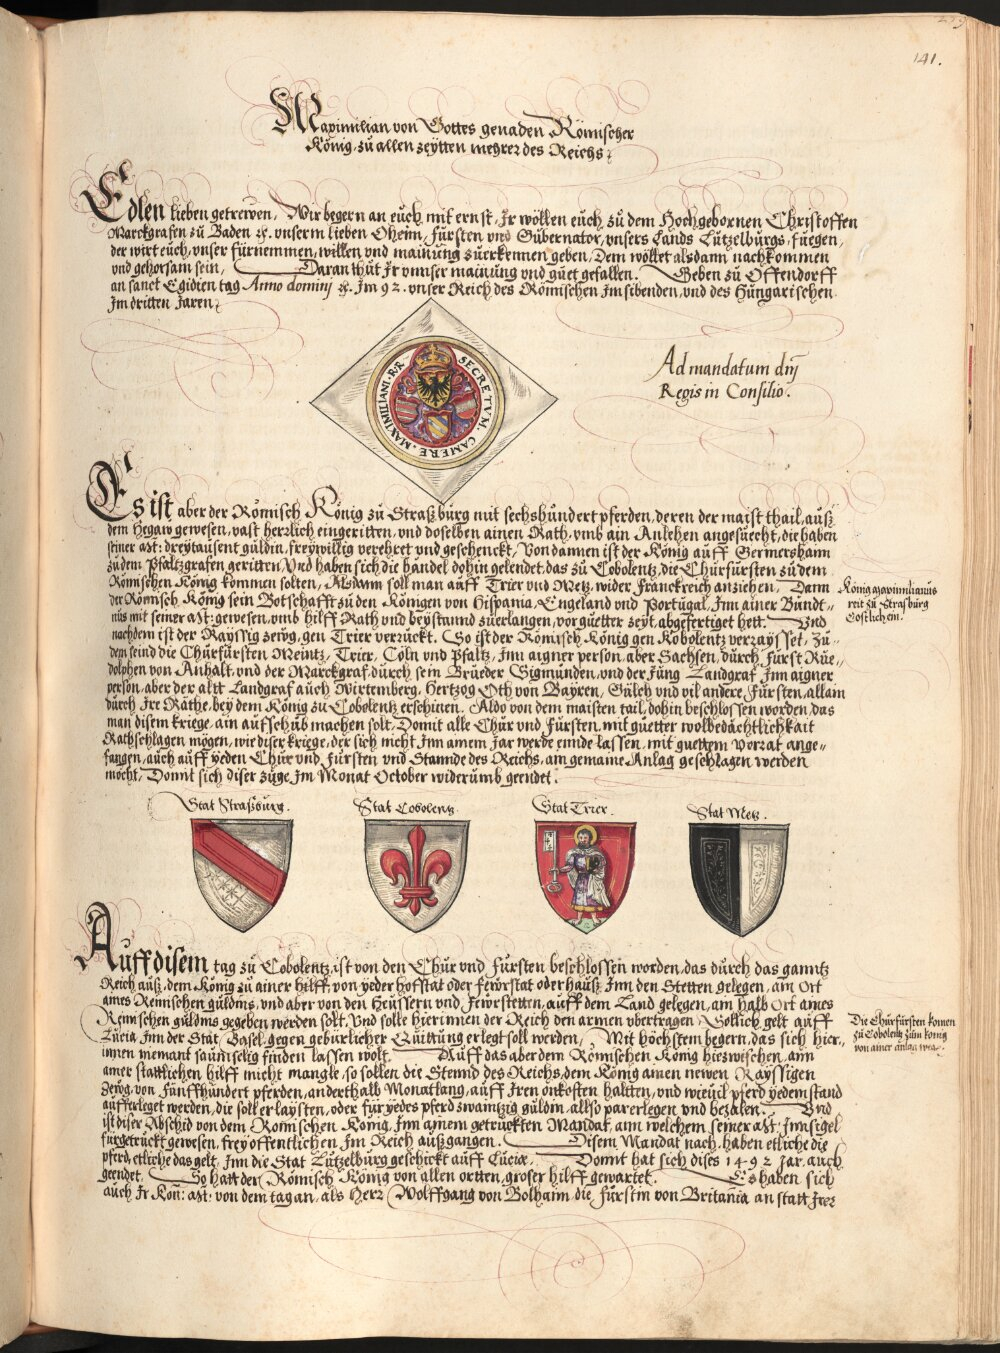 141.
Maximilian von Gottes genaden Römischer
König, zu allen zeytten mehrer des Reichs,
Edlen lieben getrewen, Wir begern an euch mit ernst, Ir wöllen euch zu dem Hochgebornen Christoffen
Marckgrafen zu Baden ꝛc. vnserm lieben Oheim, fürsten vnd Gubernator, vnsers Lands Lützelburgs, fuegen,
der wirt euch, vnser fürnemmen, willen vnd mainung zuerkennen geben, Dem wöllet alsdann nachkommen
vnd gehorsam sein, Daran thut Ir vnnser mainung vnd guet gefallen. Geben zu Offendorff
an sanct Egidien tag Anno dominj ꝛc. Im 92. vnser Reich des Römischen Im sibenden, vnd des Hungarischen
Im dritten Jaren,
SECRETVM. CAMERE. MAXIMILIANI. R.R
Ad mandatum dnj
Regis in Consilio.
Es ist aber der Römisch König zu Straßburg mit sechshundert pferden, deren der maist thail, auß
dem Hegaw gewesen, vast herrlich eingeritten, vnd doselben ainen Rath, vmb ain Anlehen angesuecht, die haben
seiner Mt: dreytausent guldin, freywillig verehret vnd geschenckt, Von dannen ist der König auff Germershaim
zu dem Pfaltzgrafen geritten, Vnd haben sich die handel dohin gelendet, das zu Cobolentz, die Churfürsten zu dem
Römischen König kommen solten, Alsdann soll man auff Trier vnd Metz, wider Franckreich anziehen, Dann
der Römisch König sein Botschafft zu den Königen von Hispania, Engeland vnd Portugal, Inn ainer Bundt-
nus mit seiner Mt: gewesen, vmb hilff Rath vnd beystannd zuerlangen, vor guetter zeyt, abgefertiget hett. Vnd
nachdem ist der Rayssig zewg, gen Trier verrückt. So ist der Römisch König gen Kobolentz verraysset, Zu-
dem seind die Churfürsten Meintz, Trier, Cöln vnd Pfaltz, Inn aigner person, aber Sachsen, durch Fürst Rue-
dolphen von Anhalt, vnd der Marckgraf durch sein Brueder Sigmunden, vnd der Jung Landgraf Inn aigner
person, aber der altt Landgraf auch Wirtemberg, Hertzog Oth von Bayren, Gülch vnd vil andere Fürsten, allain
durch Ire Räthe, bey dem König zu Cobolentz erschinen. Aldo von dem maisten tail, dohin beschlossen worden, das
man disem kriege, ain auffschub machen solt, Domit alle Chur vnd Fürsten, mit guetter wolbedächtlichkait
Rathschlagen mögen, wie diser kriege, der sich nicht Inn ainem Jar werde ennde lassen, mit guettem vorrat ange-
fangen, auch auff yeden Chur vnd Fürsten vnd Stannde des Reichs, am gemaine Anlag geschlagen werden
möcht, Domit sich diser zuge, Im Monat October widerumb geendet.
König Maximilianus
reit zu Strasburg
Costlich ein.
Stat Straßburg.
Stat Cobolentz.
Stat Trier.
Stat Metz.
Auff disem tag zu Cobolentz, ist von den Chur vnd Fürsten beschlossen worden, das durch das ganntz
Reich auß, dem König zu ainer hilff, von yeder hofstat oder fewrstat oder hauß Inn den Stetten gelegen, am Ort
aines Reinischen guldins, vnd aber von den Heüssern vnd Fewrstetten, auff dem Land gelegen, am halb Ort aines
Reinischen guldins gegeben werden solt, Vnd solle hierinnen der Reich den armen vbertragen, Söllich gelt auff
Lucia Inn der Stat Basel, gegen gebürlicher Quittung erlegt soll werden, Mit höchstem begern, das sich hier-
innen niemant saumselig finden lassen wolt. Auff das aber dem Römischen König hiezwischen, ann
ainer stattlichen hilff nicht mangle, so sollen die Stennd des Reichs, dem König ainen newen Rayssigen
Zewg, von Fünffhundert pferden, anderthalb Monatlang, auff Iren onkosten haltten, vnd wieuil pferd yedem stand
aufferleget werden, die solt er laysten, oder für yedes pferd zwaintzig guldin, allso par erlegen vnd bezalen. Vnd
ist diser Abschid von dem Römischen König, Inn ainem getruckten Mandat, ann welchem seiner Mt: Innsigel
fürgetruckt gewesen, frey offentlichen Im Reich außgangen. Disem Mandat nach, haben etliche die
pferd, etliche das gelt, Inn die Stat Lützelburg geschickt auff Lucie. Domit hat sich dises 1492 Jar, auch
geendet. So hatt der Römisch König von allen ortten, groser hilff gewartet. Es haben sich
auch Ir Kön: Mt: von dem tag an, als Herr Wolffgang von Polhaim die fürstin von Britania an statt Irer
Die Churfürsten komen
zu Cobolentz zum konig
von ainer anlag weg.